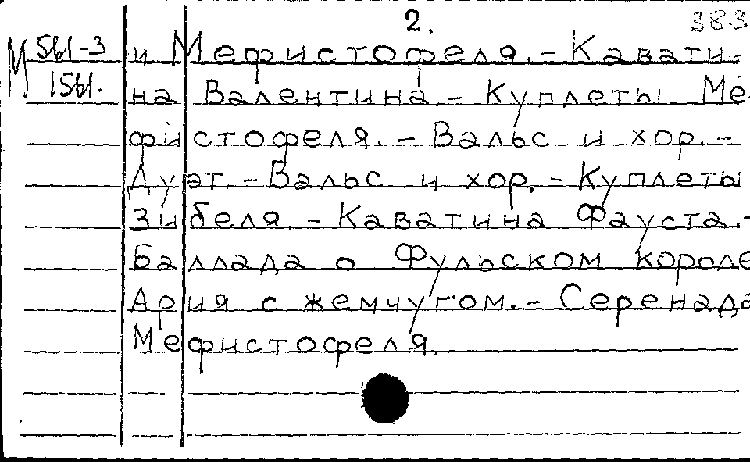 2. 383
М 561-3 и Мефистофеля.- Кавати-
1561. на Валентина.- Куплеты Ме-
фистофеля.- Вальс и хор.-
Дуэт.- Вальс и хор.- Куплеты
Зибеля.- Каватина Фауста.-
Баллада о Фульском короле
Ария с жемчугом.- Серенада
Мефистофеля.